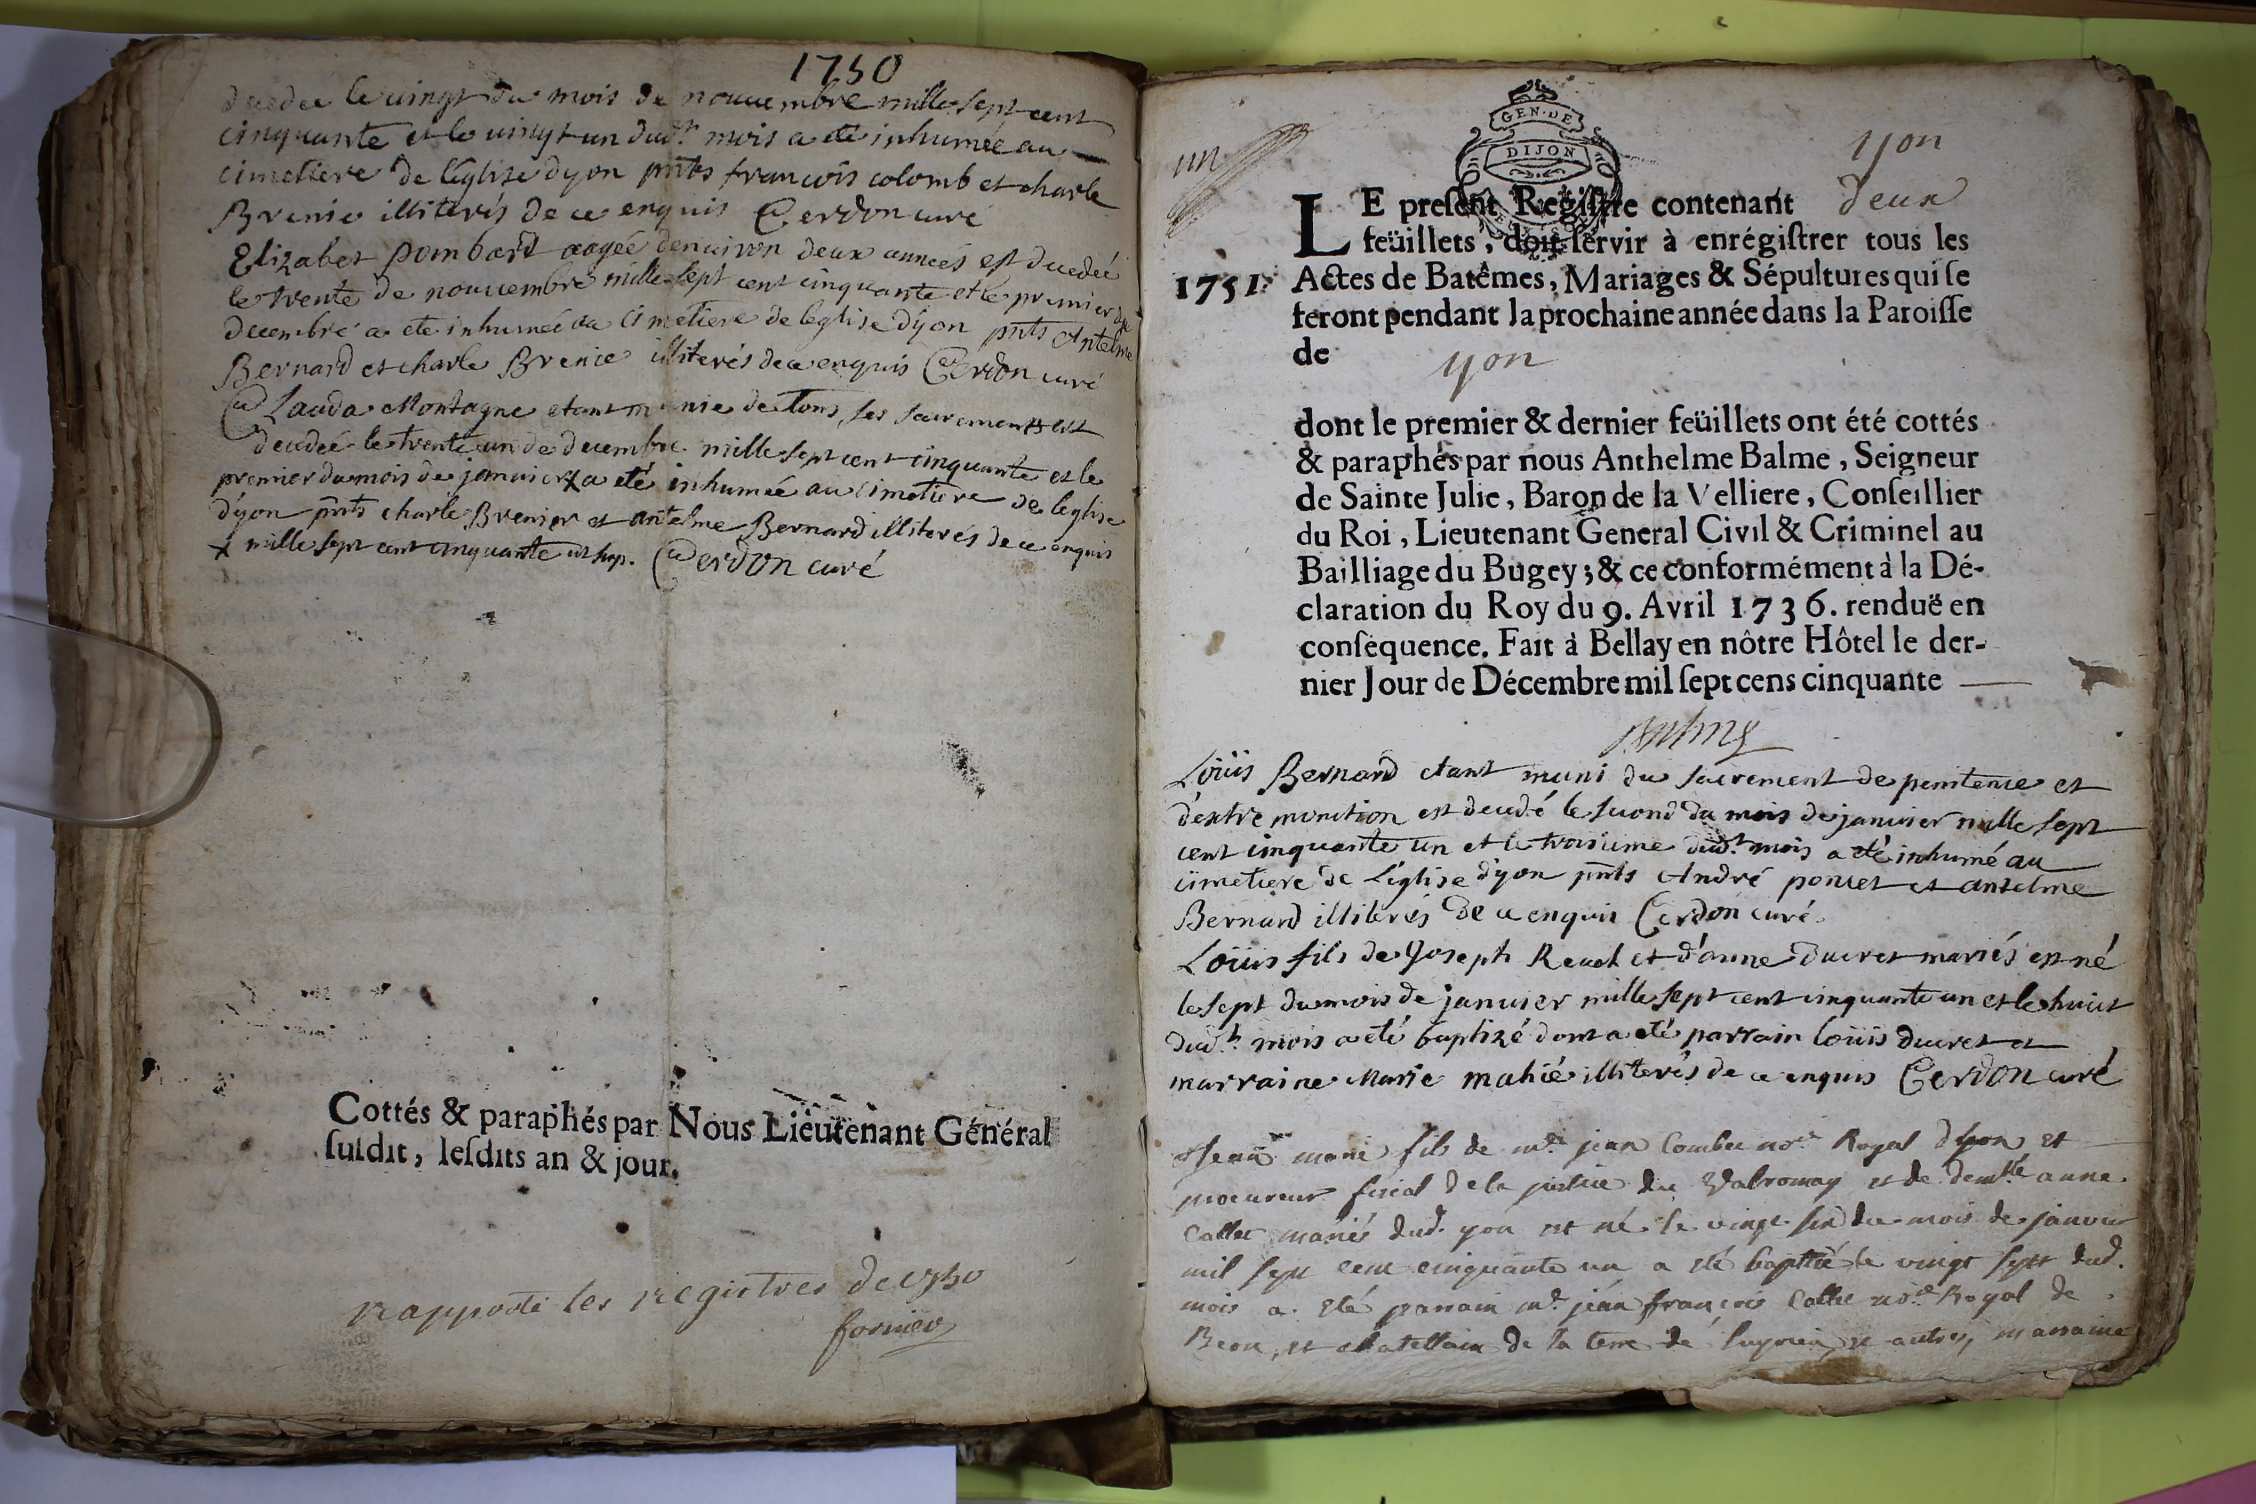 1750
decedée le vingt du mois de nouvembre mille sept cent
cinquante et le vingt un dud.t mois a eté inhumée au
cimetiere de l'église dyon pnts francois colomb et charle
Brenie illiterés de ce enquis Cerdon curé
Elizabet pombard aagée denuiron deux années est decedée
le trente de nouuembre mille sept cent cinquante et le premier de
decembre a ete inhumée au cimetiere de leglise dyon pnts Antelme
Bernard et charle Brenie illiterés de ce enquis Cerdon curé
Clauda Montagne etant munie de tous ses sacrements est
decedée le trente un de decembre mille sept cent cinquante et le
premier du mois de januier x a eté inhumée au cimetiere de leglise
dyon pnts charle Brenier et antelme Bernard illiterés de ce enquis
x mille sept cent cinquante Cerdon curé
Cottés & paraphés par Nous Lieutenant Général
susdit, lesdits an & jour.
rapporté les registres de 1750
GEN·DE
DIJON
un
yon
LE present Registre contenant deux
feüillets, doit servir à enrégistrer tous les
1751. Actes de Batêmes, Mariages & Sépultures qui se
feront pendant la prochaine année dans la Paroisse
de yon
dont le premier & dernier feüillets ont été cottés
& paraphés par nous Anthelme Balme, Seigneur
de Sainte Julie, Baron de la Velliere, Conseillier
du Roi, Lieutenant General Civil & Criminel au
Bailliage du Bugey; & ce conformément à la Dé-
claration du Roy du 9. Avril 1736. renduë en
consequence. Fait à Bellay en nôtre Hôtel le der-
nier Jour de Décembre mil sept cens cinquante
Loüis Bernard etant muni du sacrement de penitence et
d'extre monction est decedé le second du mois de januier mille sept
cent cinquante un et le troisieme dud.t mois a eté inhumé au
cimetiere de L'église dyon pnts André poncet et antelme
Bernard illiterés de ce enquis Cerdon curé
Loüis fils de Joseph Revel et d'anne Ducret mariés est né
le sept du mois de januier mille sept cent cinquante un et le huict
dud.t mois a eté baptizé dont a eté parrain loüis ducret et
marraine Marie mahié illiterés de ce enquis Cerdon curé
Jean marie fils de m.e jean Combet no.re Royal dyon et
procureur fiscal de la justice du Valromay et de dem.lle anne
Callet mariés dud. yon est né le vingt six du mois de janvier
mil sept cent cinquante un a eté baptisé le vingt sept dud.
mois a eté parrain m.e jean françois Callet no.re Royal de
Beon, et chatellain de la terre de et autres, marraine